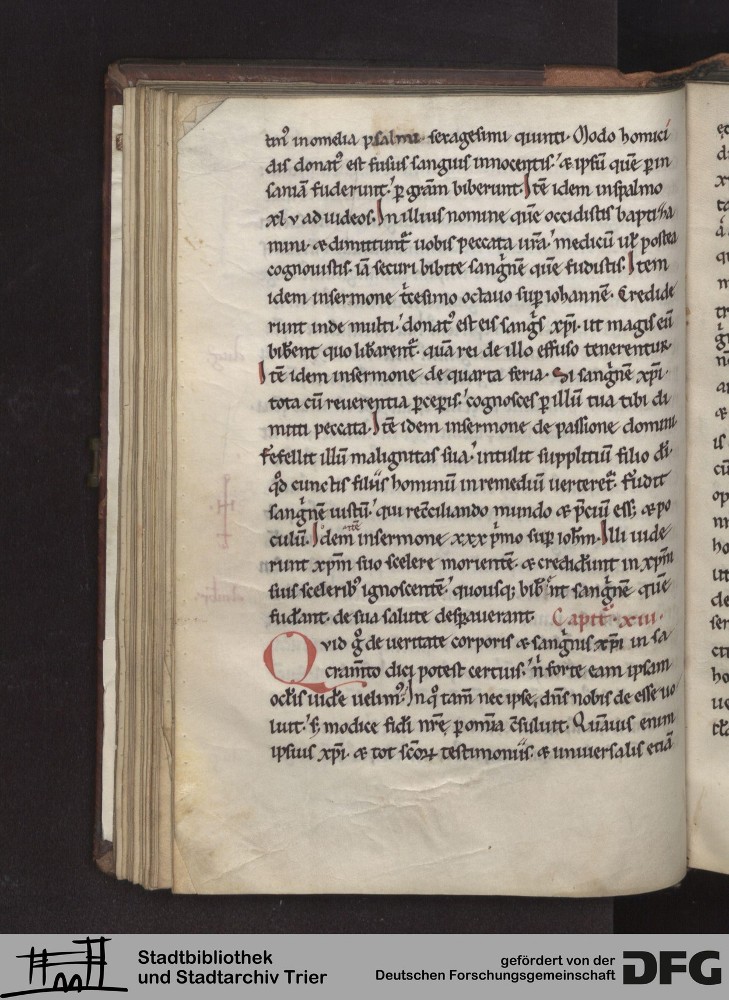 tin᷒ in omelia psalmi sexagesimi quinti. Modo homici
dis donat᷒ est fusus sanguis innocentis. & ipsū quē p in
saniā fuderunt. p grām biberunt. Itē idem in psalmo
xl v ad iudeos. In illius nomine quē occidistis baptiza
mini. & dimittunt᷒ uobis peccata ur̄a. medicū uł postea
cognouistis. iā securi bibite sangnē quē fudistis. Item
idem in sermone tcesimo octauo sup iohannē. Credide
runt inde multi. donat᷒ est eis sangs xp̄i. ut magis eū
biberent quo libarent᷒. quā rei de illo effuso tenerentur.
Itē idem in sermone de quarta feria. Si sangnē xp̄i.
tota cū reuerentia pcepis. cognosces p illū tua tibi di
mitti peccata. Itē idem in sermone de passione domini
fefellit illū malignitas sua. intulit suppliciū filio d̄i.
qd cunctis filiis hominū in remediū uerteret᷒. fudit
sangnē iustū. qui recc̄iliando mundo & pciū ess& & po
culū. Idem in sermone xxx pmo sup iohm̄. Illi uide
runt xp̄m suo scelere morientē. & crediderunt in xp̄m
suis scelerib᷒ ignoscentē. quousq; biberent sangnē quē
fuderant. de sua salute despauerant. Capit᷒. xiii.
Quid g̊ de ueritate corporis & sangnis xp̄i in sa
cram̄to dici potest certius. n̄ forte eam ipsam
oclis uide uelim᷒. In q̊ tam̄ nec ipse dn̄s nobis de esse uo
luit. s; modice fidei nr̄ę p om̄ia c̄suluit. Quāuis enim
ipsius xp̄i. & tot scōꝝ testimoniis. & uniuersalis etiā
Stadtbibliothek
und Stadtarchiv Trier
gefördert von der
Deutschen Forschungsgemeinschaft
DFG